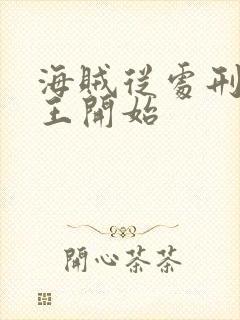 海賊從處刑
王開始
開心茶茶